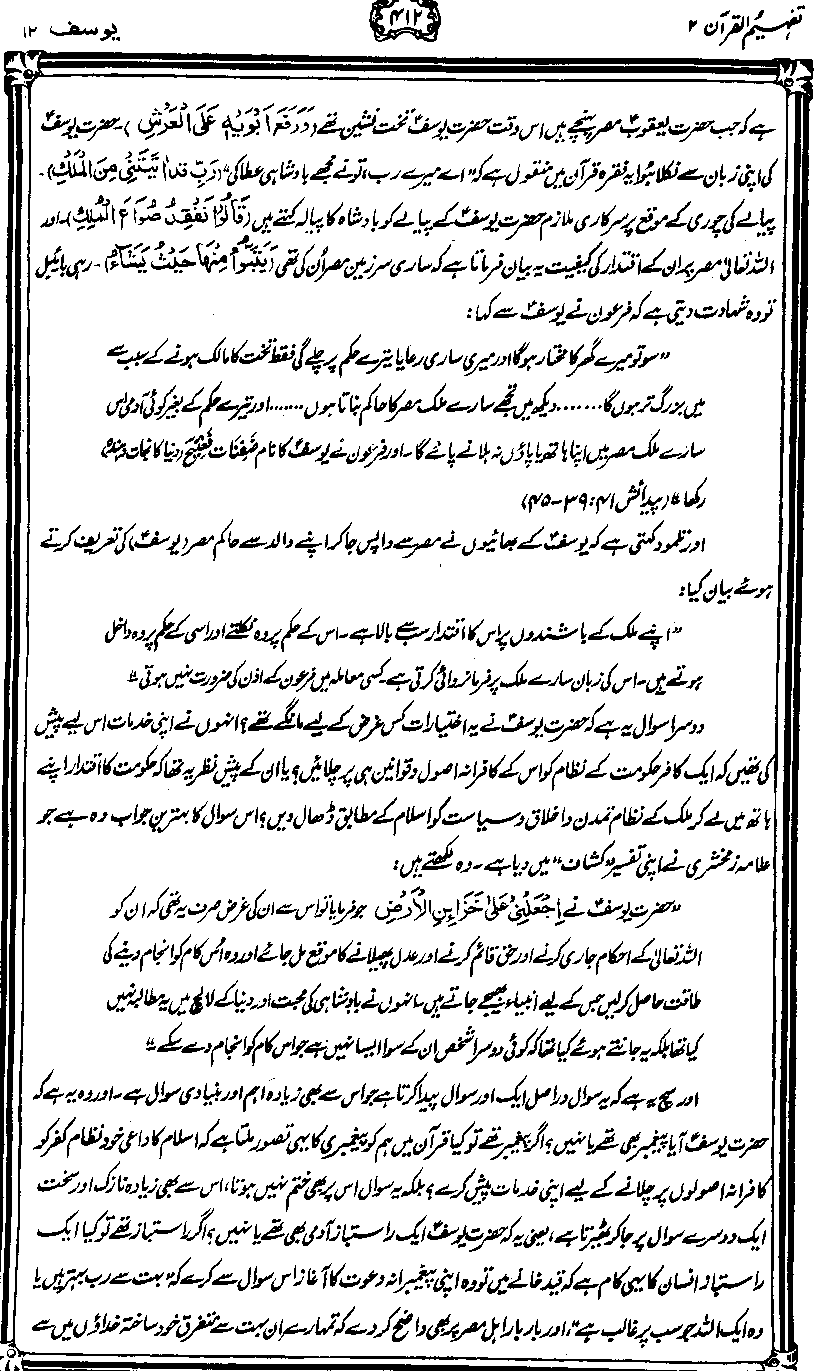 تفہیم القرآن ۲
۴۱۲
یوسف ۱۲
ہے کہ جب حضرت یعقوبؑ مصر پہنچے ہیں اس وقت حضرت یوسفؑ تخت نشین تھے (وَرَفَعَ اَبَوَيْهِ عَلَى الْعَرْشِ)۔ حضرت یوسفؑ
کی اپنی زبان سے نکلا ہوا یہ فقرہ قرآن میں منقول ہے کہ "اے میرے رب، تو نے مجھے بادشاہی عطا کی" (رَبِّ قَدْ اٰتَيْتَنِيْ مِنَ الْمُلْكِ)۔
پیالے کی چوری کے موقع پر سرکاری ملازم حضرت یوسفؑ کے پیالے کو بادشاہ کا پیالہ کہتے ہیں (قَالُوْا نَفْقِدُ صُوَاعَ الْمَلِكِ)۔ اور
اللہ تعالیٰ مصر پر ان کے اقتدار کی کیفیت یہ بیان فرماتا ہے کہ ساری سرزمین مصر اُن کی تھی (يَتَبَوَّاُ مِنْهَا حَيْثُ يَشَآءُ)۔ رہی بائیبل
تو وہ شہادت دیتی ہے کہ فرعون نے یوسفؑ سے کہا:
"سو تو میرے گھر کا مختار ہوگا اور میری ساری رعایا تیرے حکم پر چلے گی فقط تخت کا مالک ہونے کے سبب سے
میں بزرگ تر ہوں گا....... دیکھ میں تجھے سارے ملک مصر کا حاکم بناتا ہوں....... اور تیرے حکم کے بغیر کوئی آدمی اس
سارے ملک مصر میں اپنا ہاتھ یا پاؤں نہ ہلانے پائے گا۔ اور فرعون نے یوسفؑ کا نام ضِفنات فَعنِیح (دنیا کا نجات دہندہ)
رکھا" (پیدائش ۴۱: ۳۹-۴۵)
اور تلمود کہتی ہے کہ یوسفؑ کے بھائیوں نے مصر سے واپس جا کر اپنے والد سے حاکم مصر (یوسفؑ) کی تعریف کرتے
ہوئے بیان کیا:
"اپنے ملک کے باشندوں پر اس کا اقتدار سب سے بالا ہے۔ اس کے حکم پر وہ نکلتے اور اسی کے حکم پر وہ داخل
ہوتے ہیں۔ اس کی زبان سارے ملک پر فرمانروائی کرتی ہے۔ کسی معاملہ میں فرعون کے اذن کی ضرورت نہیں ہوتی"
دوسرا سوال یہ ہے کہ حضرت یوسفؑ نے یہ اختیارات کس غرض کے لیے مانگے تھے؟ انہوں نے اپنی خدمات اس لیے پیش
کی تھیں کہ ایک کافر حکومت کے نظام کو اس کے کافرانہ اصول و قوانین ہی پر چلائیں؟ یا ان کے پیش نظر یہ تھا کہ حکومت کا اقتدار اپنے
ہاتھ میں لے کر ملک کے نظام تمدن و اخلاق و سیاست کو اسلام کے مطابق ڈھال دیں؟ اس سوال کا بہترین جواب وہ ہے جو
علامہ زمخشری نے اپنی تفسیر "کشاف" میں دیا ہے۔ وہ لکھتے ہیں:
"حضرت یوسفؑ نے اِجْعَلْنِیْ عَلٰی خَزَآئِنِ الْاَرْضِ جو فرمایا تو اس سے ان کی غرض صرف یہ تھی کہ ان کو
اللہ تعالیٰ کے احکام جاری کرنے اور حق قائم کرنے اور عدل پھیلانے کا موقع مل جائے اور وہ اُس کام کو انجام دینے کی
طاقت حاصل کر لیں جس کے لیے انبیاء بھیجے جاتے ہیں۔ انہوں نے بادشاہی کی محبت اور دنیا کے لالچ میں یہ مطالبہ نہیں
کیا تھا بلکہ یہ جانتے ہوئے کیا تھا کہ کوئی دوسرا شخص ان کے سوا ایسا نہیں ہے جو اس کام کو انجام دے سکے"
اور سچ یہ ہے کہ یہ سوال دراصل ایک اور سوال پیدا کرتا ہے جو اس سے بھی زیادہ اہم اور بنیادی سوال ہے۔ اور وہ یہ ہے کہ
حضرت یوسفؑ آیا پیغمبر بھی تھے یا نہیں؟ اگر پیغمبر تھے تو کیا قرآن میں ہم کو پیغمبری کا یہی تصور ملتا ہے کہ اسلام کا داعی خود نظام کفر کو
کافرانہ اصولوں پر چلانے کے لیے اپنی خدمات پیش کرے؟ بلکہ یہ سوال اس پر بھی ختم نہیں ہوتا، اس سے بھی زیادہ نازک اور سخت
ایک دوسرے سوال پر جا کر ٹھیرتا ہے، یعنی یہ کہ حضرت یوسفؑ ایک راستباز آدمی بھی تھے یا نہیں؟ اگر راستباز تھے تو کیا ایک
راستباز انسان کا یہی کام ہے کہ قید خانے میں تو وہ اپنی پیغمبرانہ دعوت کا آغاز اس سوال سے کرے کہ "بہت سے رب بہتر ہیں یا
وہ ایک اللہ جو سب پر غالب ہے"، اور بار بار اہل مصر پر بھی واضح کر دے کہ تمہارے ان بہت سے متفرق خود ساختہ خداؤں میں سے